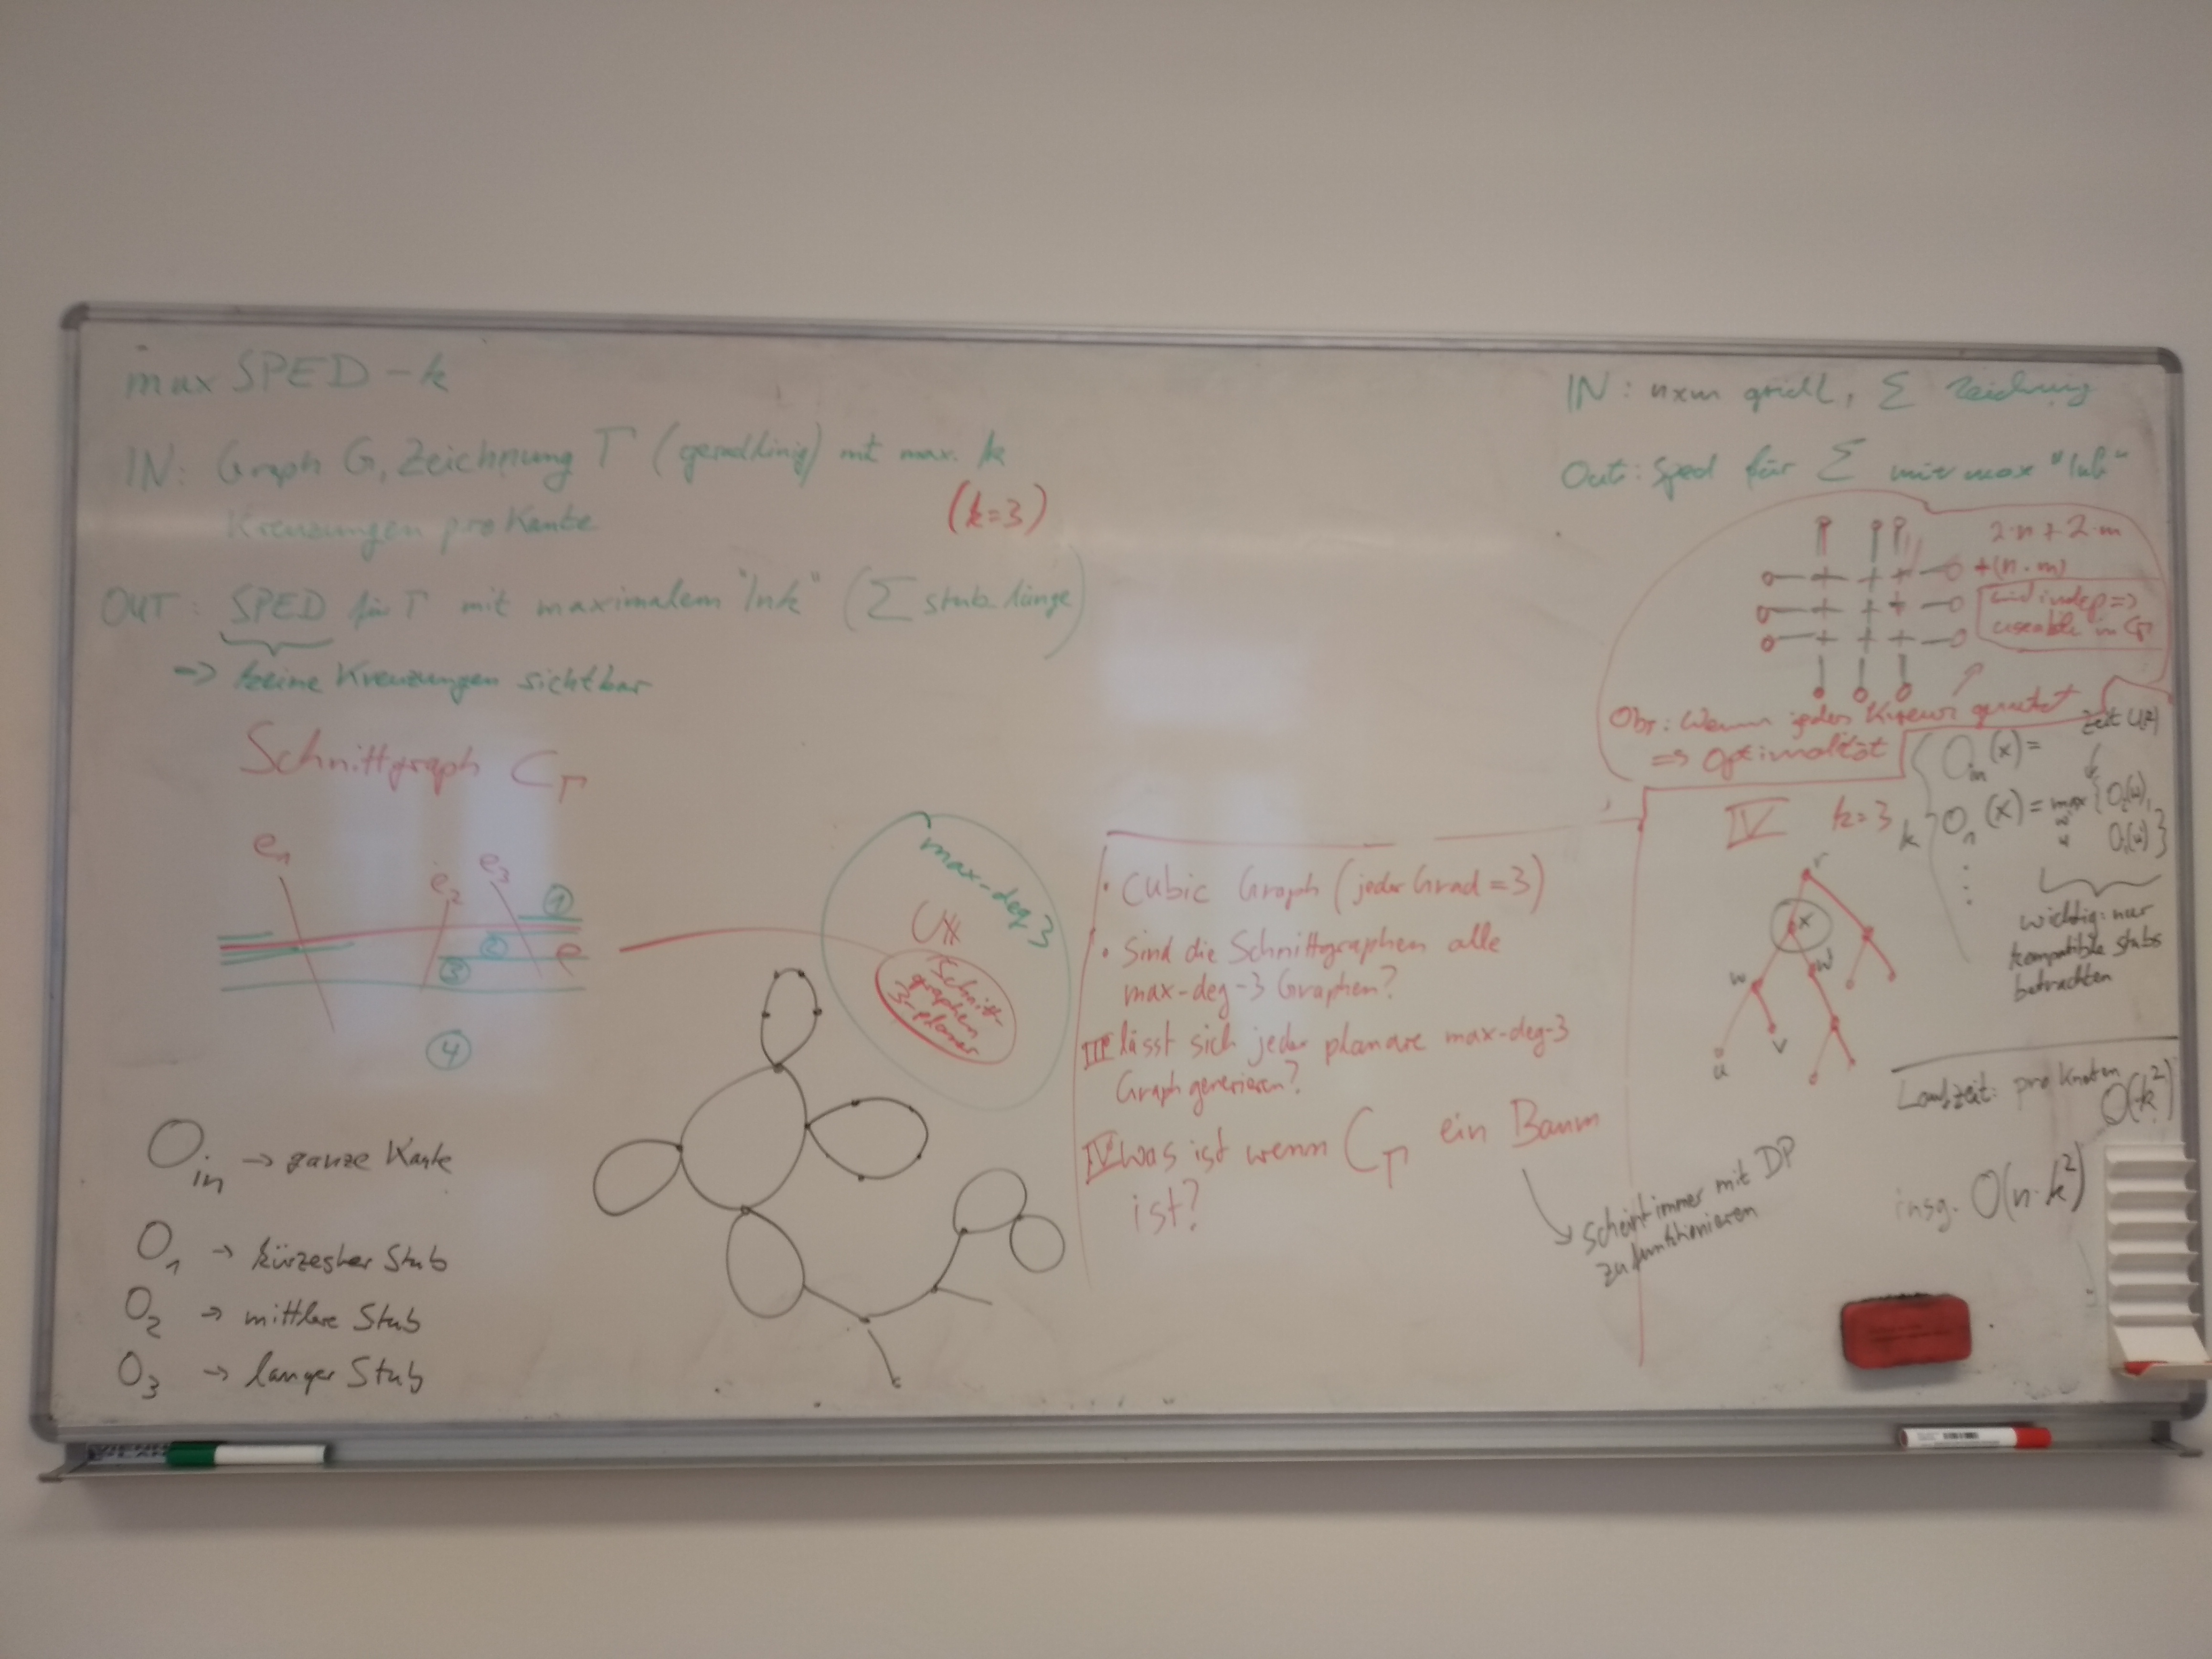 max SPED - k
IN: Graph G, Zeichnung Γ (geradlinig) mit max. k
Kreuzungen pro Kante
(k=3)
OUT: SPED für Γ mit maximalem "Ink" (∑ stub länge)
=> keine Kreuzungen sichtbar
Schnittgraph C_Γ
e₁
e₂
e₃
①
②
e
③
④
O_in -> ganze Kante
O₁ -> kürzester Stub
O₂ -> mittlere Stub
O₃ -> langer Stub
max-deg 3
Schnitt-
graphen
3-planar
• Cubic Graph (jeder Grad = 3)
• Sind die Schnittgraphen alle
max-deg-3 Graphen?
III lässt sich jeder planare max-deg-3
Graph generieren?
IV was ist wenn C_Γ ein Baum
ist?
scheint immer mit DP
zu funktionieren
IN: nxm grid, ∑ Zeichnung
Out: Sped für ∑ mit max "Ink"
2·n + 2·m
+(n·m)
sind indep =>
in C_Γ
Obs: Wenn jedes Kreuz genutzt
=> Optimalität
IV k=3
r
x
w
w
v
u
k
O_in(x) =
O₁(x) = max {
wichtig: nur
kompatible stubs
betrachten
Laufzeit: pro Knoten
O(k²)
insg. O(n·k²)